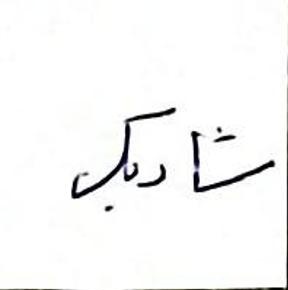 شادبک